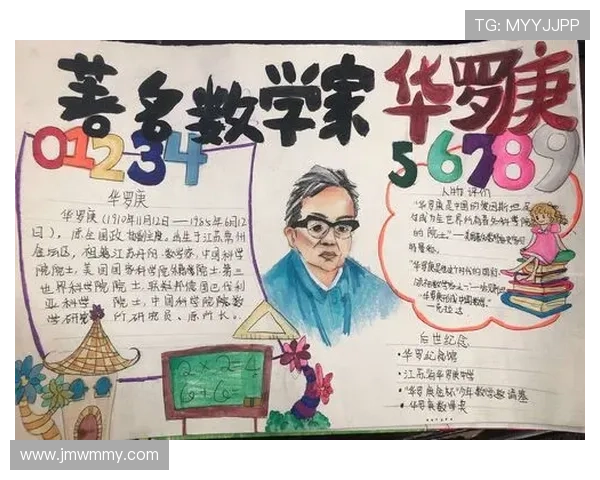 TG: MYYJJPP
著名数学家 华罗庚
0 1 2 3 4
5 6 7 8 9
华罗庚
华罗庚(1910年11月12日——1985年6月12
日),
出生于江苏常州
金坛区,祖籍江苏丹阳,数学家,中国科学
院院士,美国国家科学院外籍院士,第三
世界科学院院士,联邦德国巴伐利
亚科学院院士,中国科学院数
学研究所研究员、原所长。
人物评价
"华罗庚是中国的爱因斯坦,足
够成为全世界所有著名科学院
的院士。"
后世纪念
·华罗庚纪念馆
·江苏省华罗庚中学
·"华罗庚金杯"少年数学邀请赛
·华罗庚数学奖
2×2=4
6+6=
www.jmwmmy.com